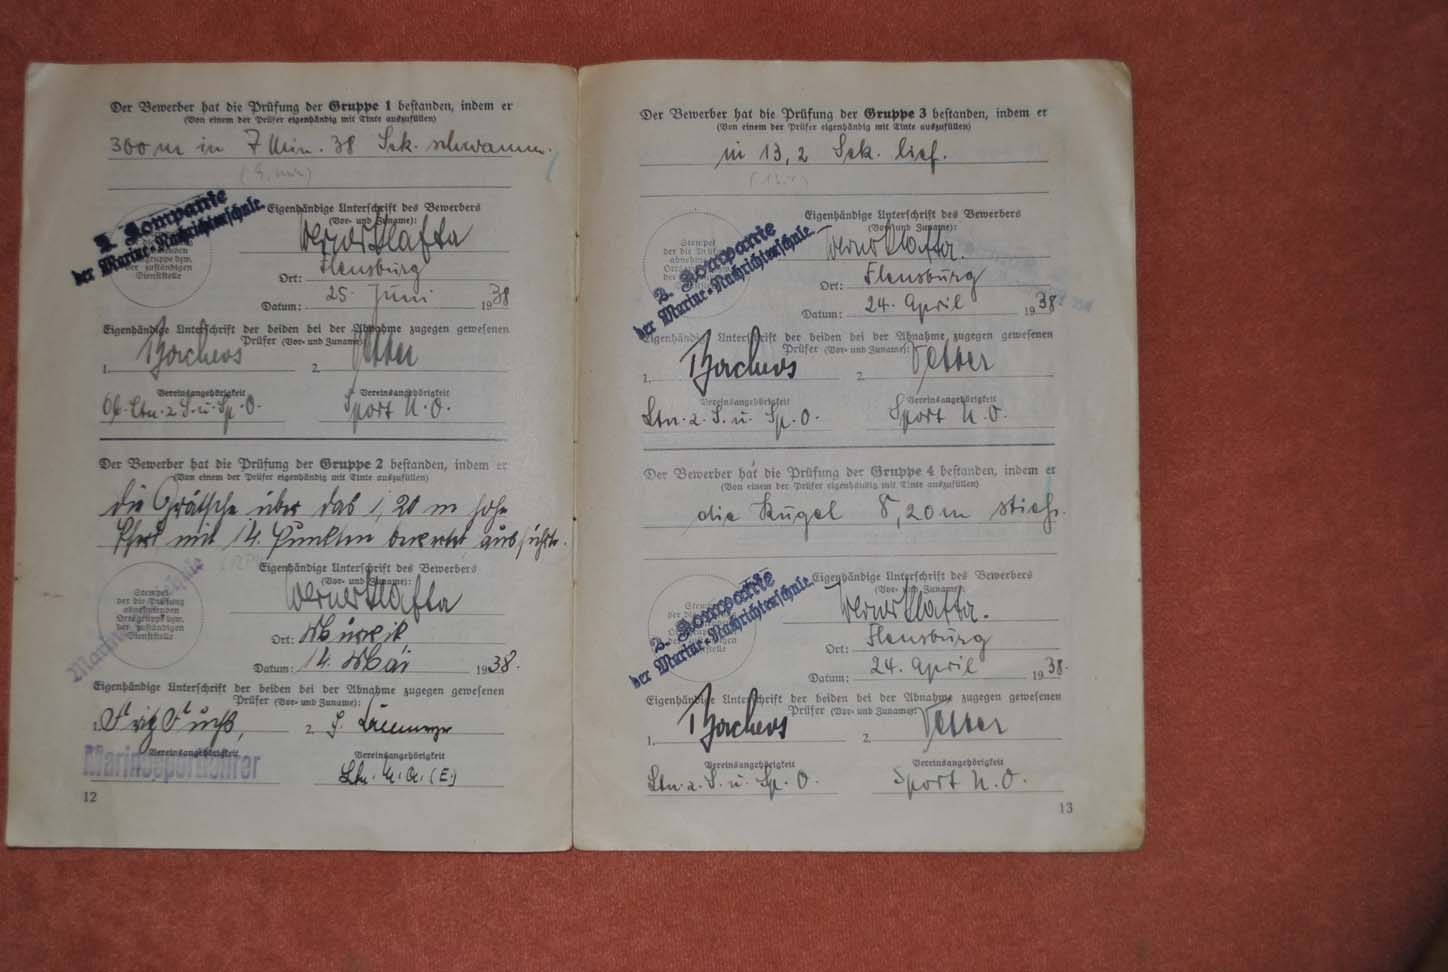 Der Bewerber hat die Prüfung der Gruppe 1 bestanden, indem er
(Von einem der Prüfer eigenhändig mit Tinte auszufüllen)
300 m in 7 Min. 38 Sek. schwamm.
2. Kompanie
der Marine-Nachrichtenschule.
zuständigen
Dienststelle
Eigenhändige Unterschrift des Bewerbers
(Vor- und Zuname):
Werner Klafta
Ort: Flensburg
Datum: 25. Juni 1938
Eigenhändige Unterschrift der beiden bei der Abnahme zugegen gewesenen
Prüfer (Vor- und Zuname):
1. 2. Vetter
Vereinsangehörigkeit Vereinsangehörigkeit
Ltn. z. S. u. Sp. O. Sport U. O.
Der Bewerber hat die Prüfung der Gruppe 2 bestanden, indem er
(Von einem der Prüfer eigenhändig mit Tinte auszufüllen)
die Grätsche über das 1,20 m hohe
Pferd mit 14 Punkten bewertet ausführte.
Stempel
der die Prüfung
abnehmenden
Ortsgruppe bzw.
der zuständigen
Dienststelle
Eigenhändige Unterschrift des Bewerbers
(Vor- und Zuname):
Werner Klafta
Ort: Mürwik
Datum: 14. Mai 1938.
Eigenhändige Unterschrift der beiden bei der Abnahme zugegen gewesenen
Prüfer (Vor- und Zuname):
1. Fritz Fuchs, 2.
Vereinsangehörigkeit Vereinsangehörigkeit
Marinesportlehrer Ltn. M. A. (E.)
12
Der Bewerber hat die Prüfung der Gruppe 3 bestanden, indem er
(Von einem der Prüfer eigenhändig mit Tinte auszufüllen)
in 13,2 Sek. lief.
Stempel
der die Prüfung
2. Kompanie
der Marine-Nachrichtenschule.
Eigenhändige Unterschrift des Bewerbers
(Vor- und Zuname):
Werner Klafta.
Ort: Flensburg
Datum: 24. April 1938
Eigenhändige Unterschrift der beiden bei der Abnahme zugegen gewesenen
Prüfer (Vor- und Zuname):
1. 2. Vetter
Vereinsangehörigkeit Vereinsangehörigkeit
Ltn. z. S. u. Sp. O. Sport U. O.
Der Bewerber hat die Prüfung der Gruppe 4 bestanden, indem er
(Von einem der Prüfer eigenhändig mit Tinte auszufüllen)
die Kugel 8,20 m stieß.
2. Kompanie
der Marine-Nachrichtenschule.
Eigenhändige Unterschrift des Bewerbers
(Vor- und Zuname):
Werner Klafta.
Ort: Flensburg
Datum: 24. April 1938.
Eigenhändige Unterschrift der beiden bei der Abnahme zugegen gewesenen
Prüfer (Vor- und Zuname):
1. 2. Vetter
Vereinsangehörigkeit Vereinsangehörigkeit
Ltn. z. S. u. Sp. O. Sport U. O.
13